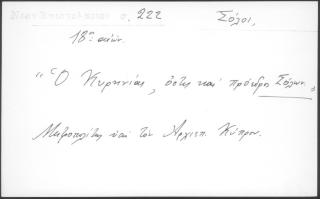 σ. 222 Σόλοι,
18ος αιών.
"Ο Κυρηνίας, όστις και πρόεδρος Σόλων.
Μητροπολίτης υπό τον Αρχιεπ. Κύπρου.